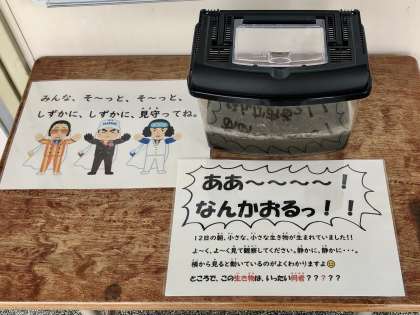 みんな、そ～っと、そ～っと、
しずかに、しずかに、見守ってね。
ああ～～～～！
なんかおるっ！！
12日の朝、小さな、小さな生き物が生まれていました！！
よ～く、よ～く見て観察してください。静かに、静かに・・・。
横から見ると動いているのがよくわかりますよ😊
ところで、この生き物は、いったい何者？？？？？